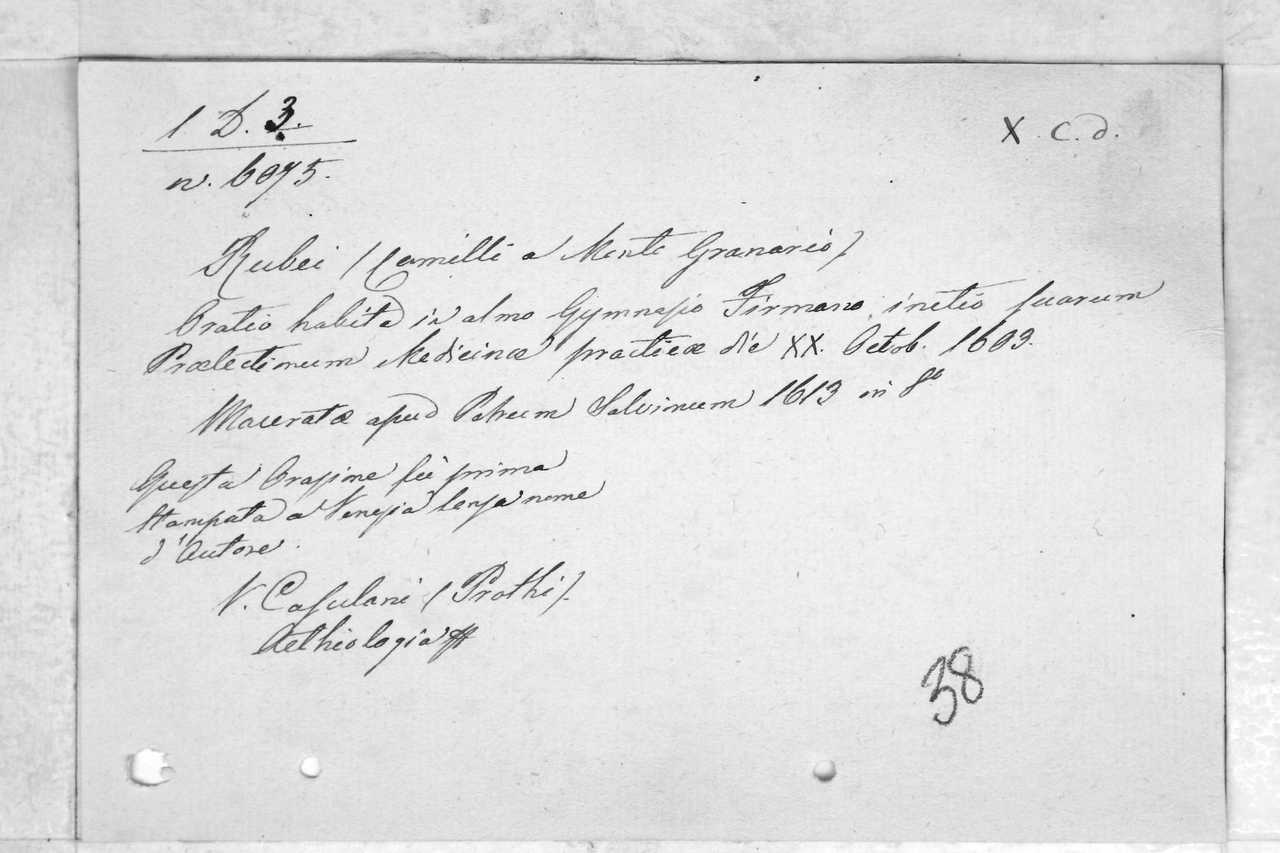 1 D. 3.
X. C. d.
n. 6075.
Rubei (Camilli a Monte Granario)
Oratio habita in almo Gymnasio Firmano, initio suarum
Prælectionum Medicinæ practicæ die XX. Octob. 1603.
Maceratæ apud Petrum Salvionum 1613 in 8º
Questa Orazione fù prima
stampata a Venezia senza nome
d'Autore.
V. Casulani (Prothi)
Aethiologia
38